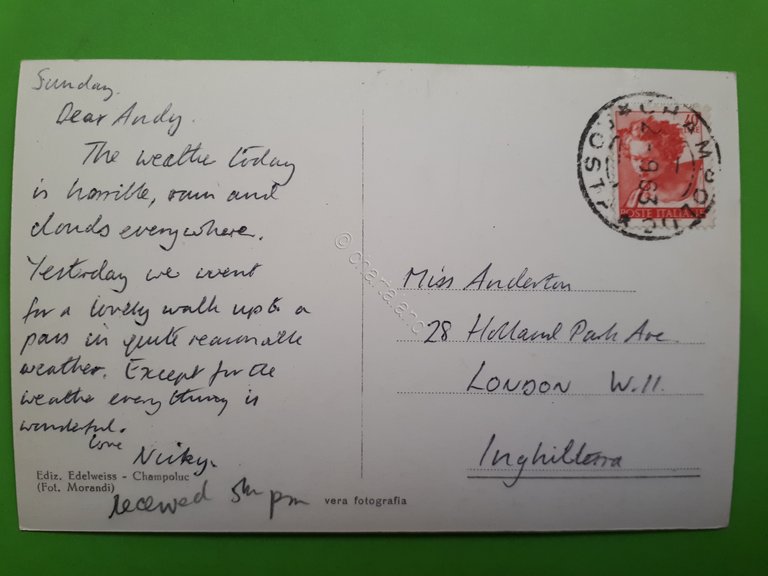 Sunday.
Dear Andy.
The weathe today
is horrible, rain and
clouds everywhere.
Yesterday we went
for a lovely walk up to a
pass in quite reasonable
weather. Except for the
weathe everything is
wonderful.
love
Nicky.
Ediz. Edelweiss - Champoluc
(Fot. Morandi)
received 5th pm
vera fotografia
CHAMPOLUC
AOSTA
2-9 63
POSTE ITALIANE
Miss Anderton
28 Holland Park Ave.
LONDON W.11.
Inghilterra